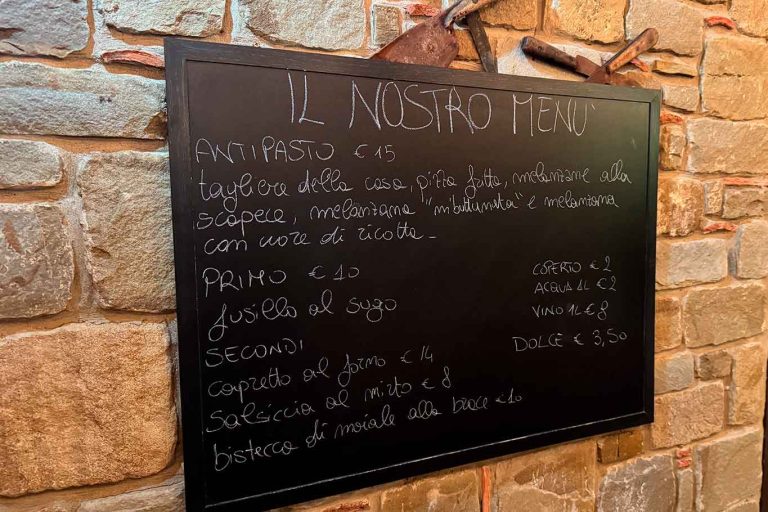 IL NOSTRO MENU'
ANTIPASTO € 15
tagliere della casa, pizza fritta, melanzane alla
scapece, melanzana "m'buttunata" e melanzana
con cuore di ricotta -
PRIMO € 10
fusillo al sugo
SECONDI
capretto al forno € 14
salsiccia al mirto € 8
bistecca di maiale alla brace € 10
COPERTO € 2
ACQUA 1L € 2
VINO 1L € 8
DOLCE € 3,50